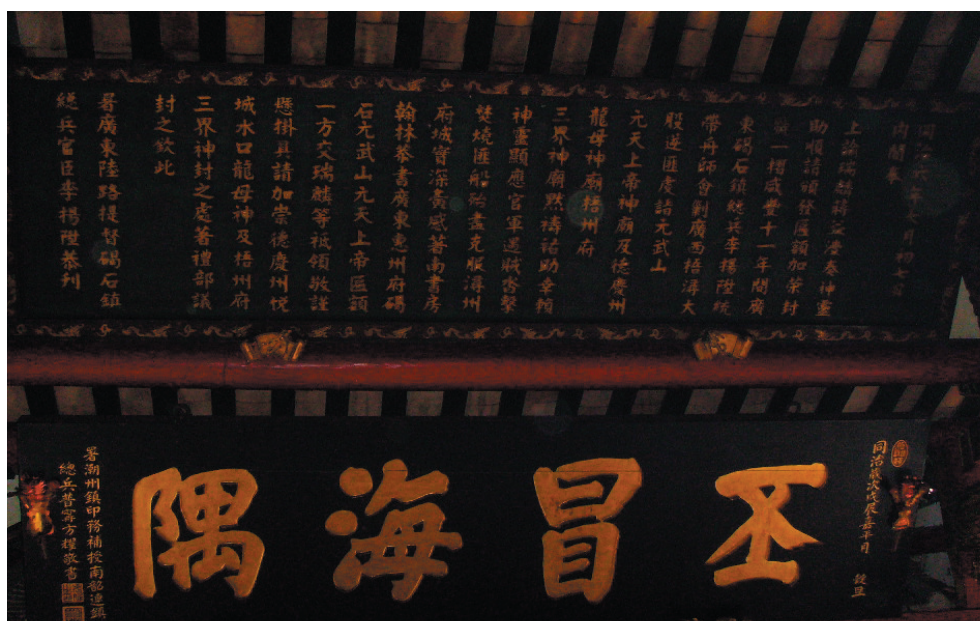 同治六年七月初七日
內閣奉
上諭瑞麟蔣益澧奏神靈
助順請頒發匾額加崇封
號一摺咸豐十一年間廣
東碣石鎮總兵李揚陞統
帶舟師會剿廣西梧潯大
股逆匪虔請元武山
元天上帝神廟及德慶州
龍母神廟梧州府
三界神廟默禱祐助幸賴
神靈顯應官軍遇賊奮擊
焚燒匪船殆盡克服潯州
府城實深寅感著南書房
翰林恭書廣東惠州府碣
石元武山元天上帝匾額
一方交瑞麟等祗領敬謹
懸掛其請加崇德慶州悅
城水口龍母神及梧州府
三界神封之處著禮部議
封之欽此
署廣東陸路提督碣石鎮
總兵官臣李揚陞恭刋
同治歲次戊辰嘉平月
穀旦
丕冒海隅
署潮州鎮印務補授南韶連鎮
總兵普寧方耀敬書